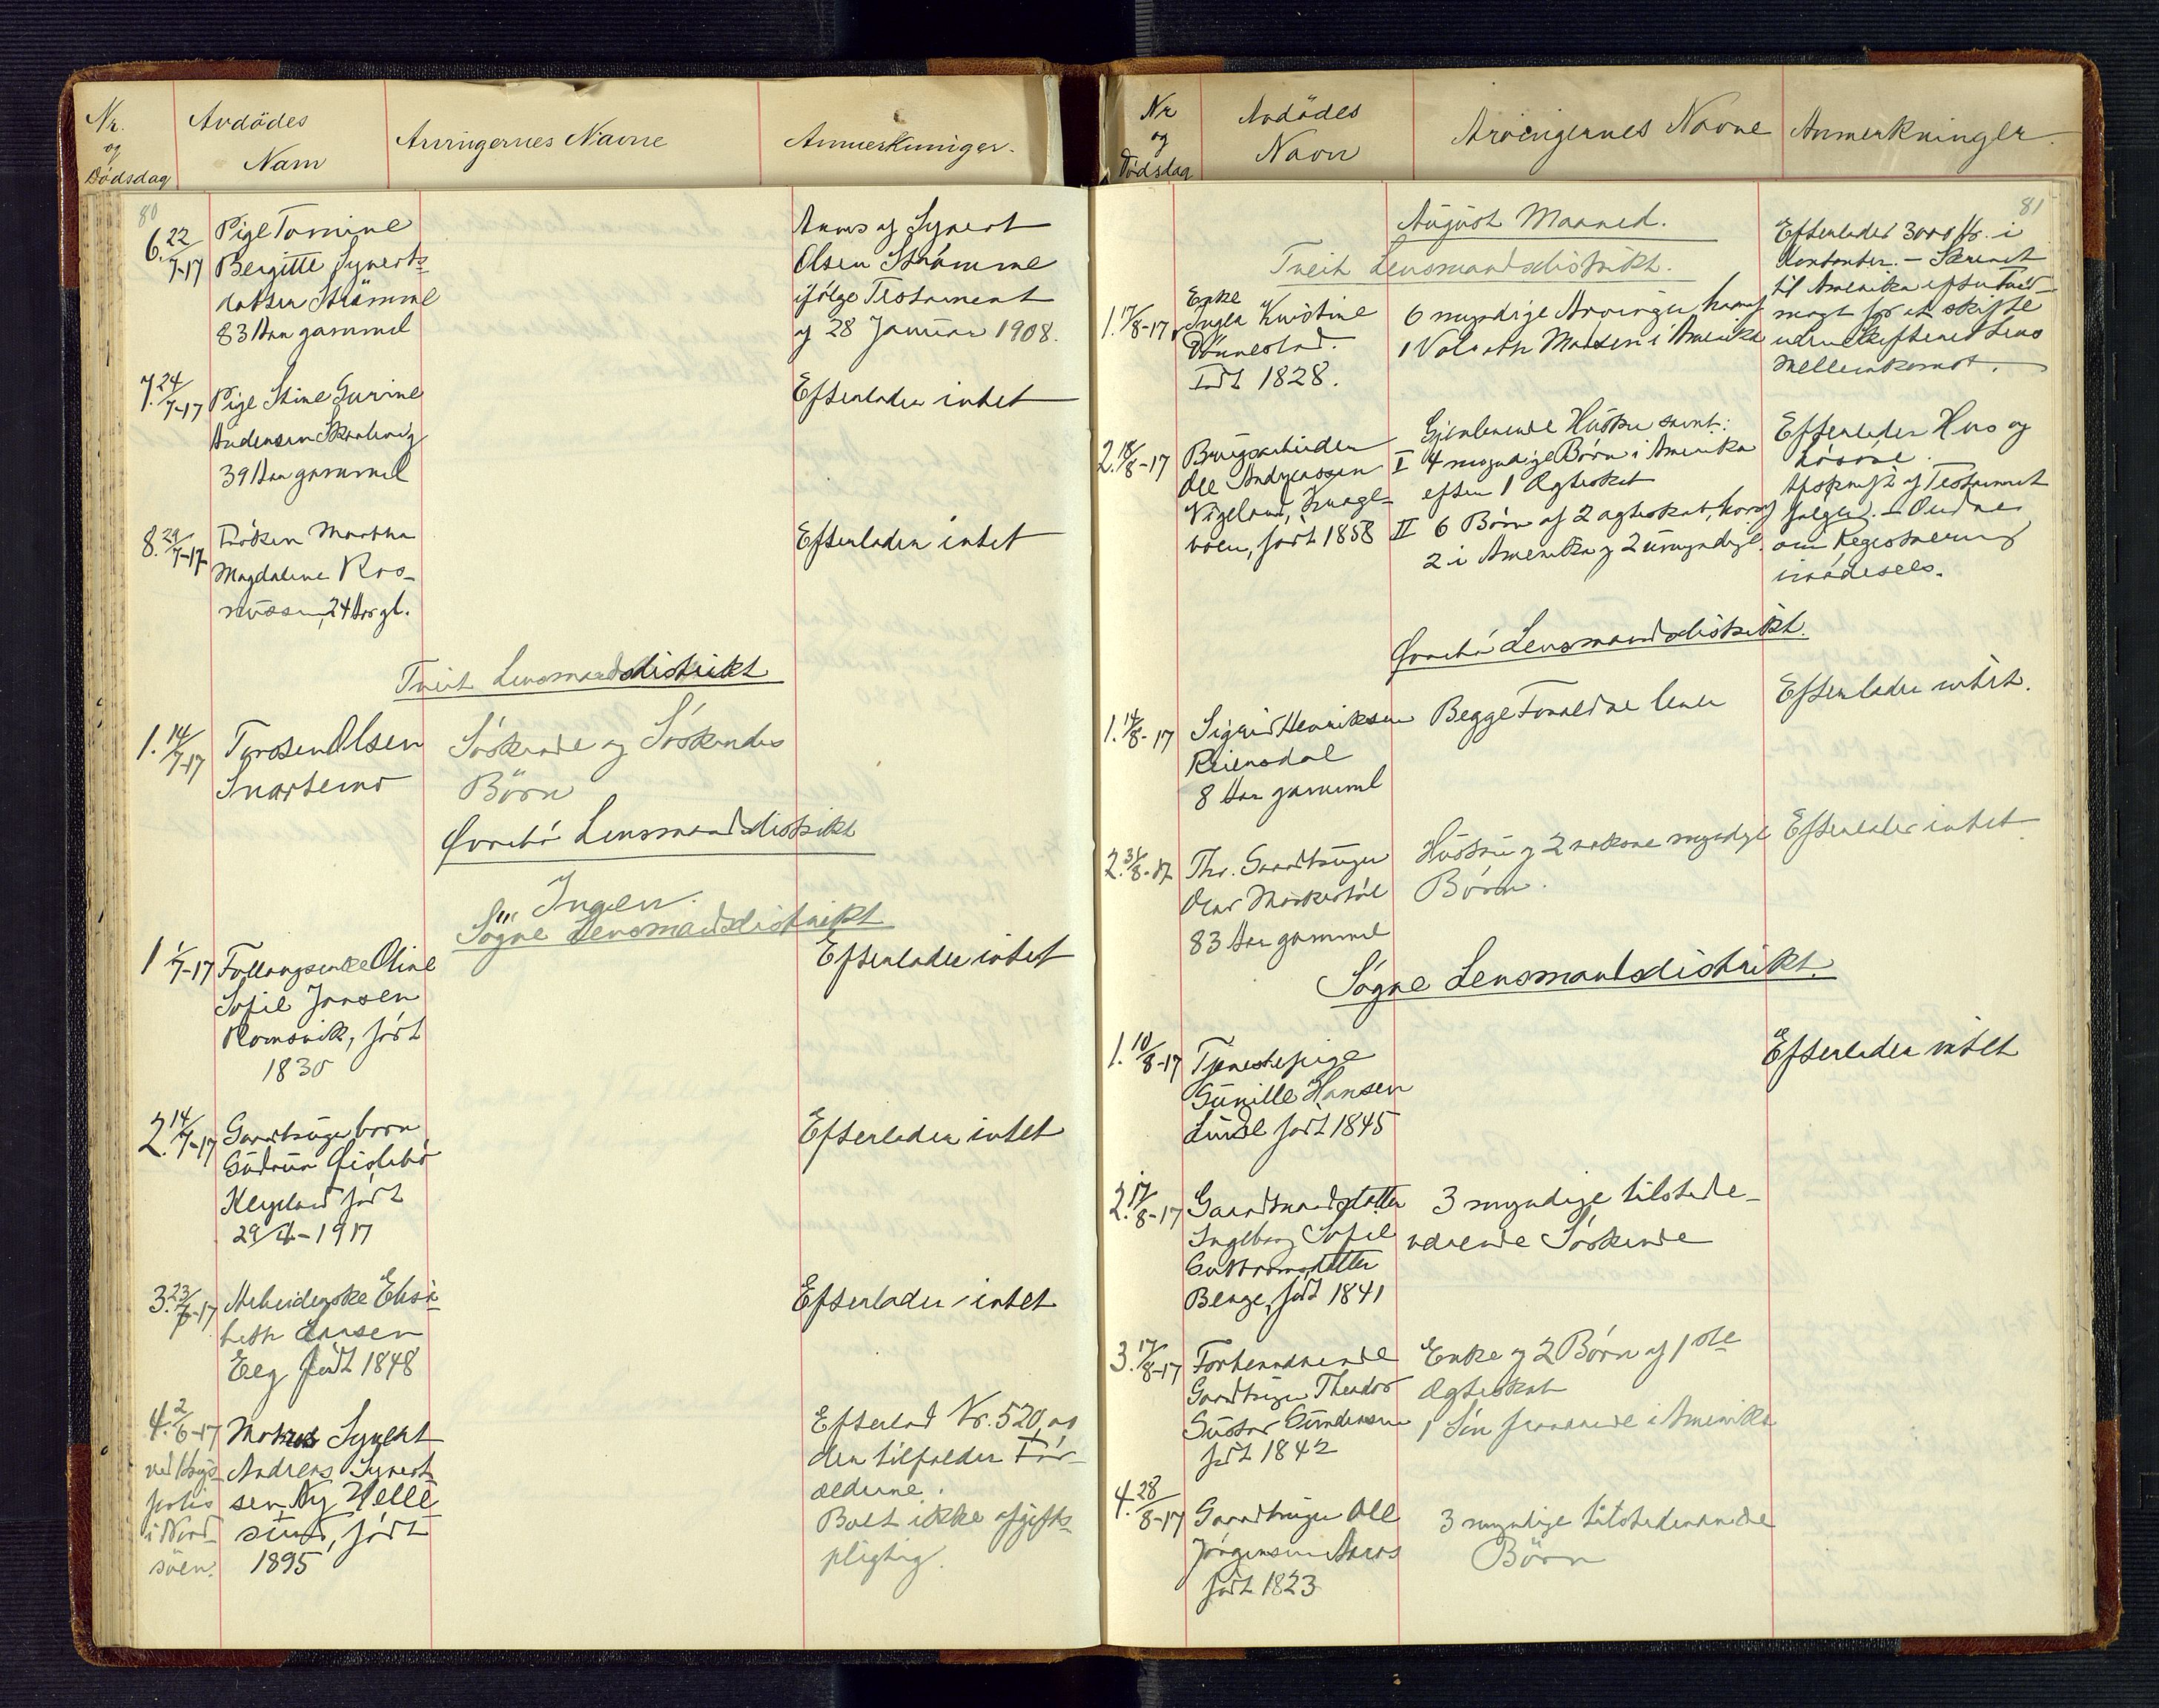 Nr.
og
Dödsdag
Avdödes
Navn
Arvingernes Navne
Anmerkninger.
80
6. 22/7-17
Pige Tomine
Bergitte Syverts-
datter Strömme
83 Aar gammel
Arves af Syvert
Olsen Strömme
ifölge Testament
af 28 Januar 1908.
7. 24/7-17
Pige Stine Gurine
Andersen
39 Aar gammel
Efterlader intet
8. 29/7-17
Fröken Martha
Magdalene Ras-
mussen, 24 Aar gl.
Efterlader intet
Tveit Lensmandsdistrikt
1. 14/7-17
Torsen Olsen
Svartemo
Söskende og Söskendes
Börn
Øvrebö Lensmandsdistrikt
Ingen.
Sögne Lensmandsdistrikt
1 1/7-17
Oline
Sofie Jansen
Romsvik, född
1830
Efterlader intet
2. 14/7-17
Gaardbruger barn
Gudrun
Klepland född
29/4-1917
Efterlader intet
3. 23/7-17
Arbeiderske Elisa-
beth Hansen
Eeg född 1848
Efterlader intet
4. 2/6-17
ved
i Nord-
söen.
Matros Syvert
Andreas Syvert-
sen Ny Helle-
sund, född
1895
Efterlod Kr. 520,00
den tilfalder For-
ældrene.
Boet ikke afgifts-
pligtig.
Nr
og
Dödsdag
Avdödes
Navn
Arvingernes Navne
Anmerkninger.
81
August Maaned.
Tveit Lensmandsdistrikt.
1. 17/8-17
Enke
Inger Kristine
Född 1828.
6 myndige Arvinger, hvoraf
1 Madsen i Amerika
Efterlader 3000 Kr. i
Kontanter. – Skrevet
til Amerika efter Fuld-
magt for at skifte
uden Skifterettens
Mellemkomst.
2. 18/8-17
Brugsarbeider
Ole Andreassen
Vigeland,
född 1858
Gjenlevende Hustru samt:
I 4 myndige Börn i Amerika
efter 1 Ægteskab
II 6 Börn af 2 ægteskab, hvoraf
2 i Amerika og 2 umyndige.
Efterlader Hus og
Lösöre.
Afskrift af Testament
fölger. –
om Registrering
imödesees.
Øvrebö Lensmandsdistrikt.
1. 14/8-17
Sigrid Henriksen
Reiersdal
8 Aar gammel
Begge Forældre lever
Efterlader intet.
2. 31/8-17
Fhv. Gaardbruger
83 Aar gammel
Hustru og 2 voksne myndige
Börn.
Efterlader intet
Sögne Lensmandsdistrikt.
1. 10/8-17
Tjenestepige
Gunille Hansen
Lunde född 1845
Efterlader intet
2. 17/8-17
Gaardmandsdatter
Ingeborg Sofie
Guttormsdatter
Berge, född 1841
3 myndige tilstede-
værende Söskende
3. 17/8-17
Forhenværende
Gaardbruger Theodor
Gustav Gundersen
född 1842
Enke og 2 Börn af 1ste
Ægteskab
1 Sön fraværende i Amerika
4. 28/8-17
Gaardbruger Ole
Jörgensen Aaros
född 1823
3 myndige tilstedeværende
Börn